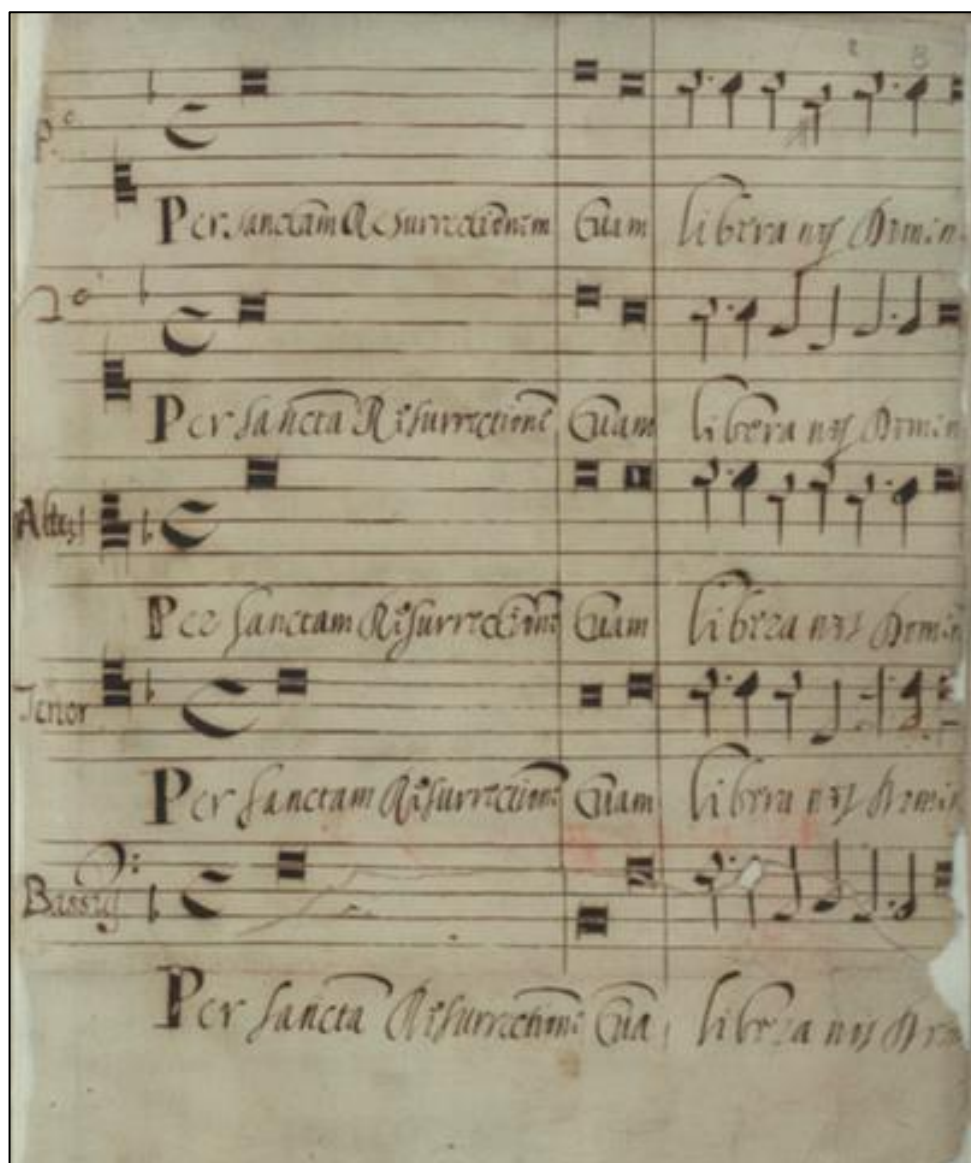 8
P.º
Per sanctam Resurrectionem tuam libera nos Domin
2º
Per sanctã Resurrectionẽ tuam libera nos Domin
Altus
Per sanctam Resurrectionẽ tuam libera nos Domin
Tenor
Per sanctam Resurrectionẽ tuam libera nos Domin
Bassus
Per sanctã Resurrectionẽ tuã libera nos Dom